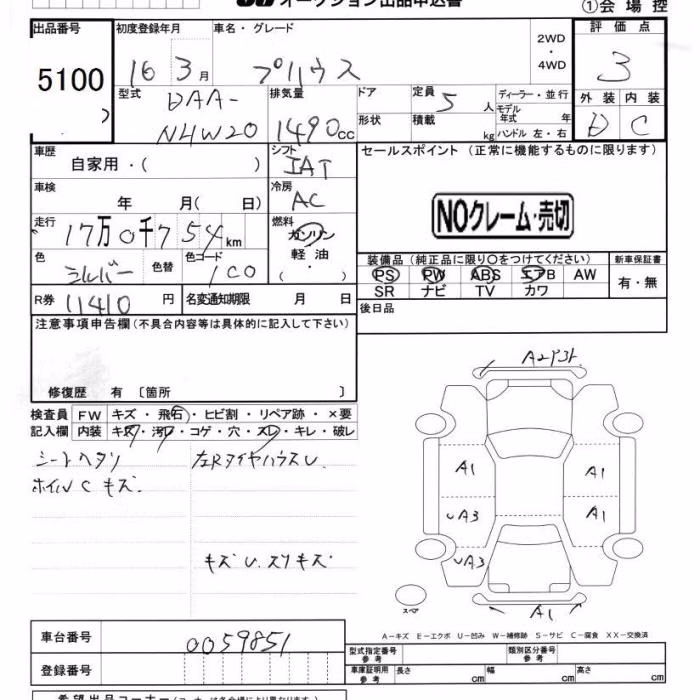 オークション出品申込書
①会場控
出品番号 初度登録年月 車名・グレード 2WD・4WD 評価点
5100 16 3月 プリウス 3
型式 排気量 ドア 定員 ディーラー・並行 外装 内装
DAA-NHW20 1490cc 5人 モデル年式 年 D C
形状 積載 kg ハンドル 左・右
車歴 シフト セールスポイント (正常に機能するものに限ります)
自家用・( ) IAT
車検 冷房
年 月( 日) AC NOクレーム・売切
走行 燃料
17万0千754km ガソリン
軽油・( )
色 色替 色コード 装備品 (純正品に限り○をつけてください) 新車保証書
シルバー 1C0 PS PW ABS エアB AW 有・無
SR ナビ TV カワ
R券 11410円 名変通知期限 月 日 後日品
注意事項申告欄 (不具合内容等は具体的に記入して下さい)
修復歴 有 〔箇所 〕
検査員 FW キズ・飛石・ヒビ割・リペア跡・×要
記入欄 内装 キズ・汚レ・コゲ・穴・スレ・キレ・破レ
シートヘタリ 左RタイヤハウスU
ホイルC キズ
キズU.スリキズ
A2P3
A1 A1
UA3 A1
UA3
スペア A1
A－キズ E－エクボ U－凹み W－補修跡 S－サビ C－腐食 XX－交換済
車台番号 0059851 型式指定番号 参考 類別区分番号 参考
登録番号 車庫証明用 参考 長さ cm 幅 cm 高さ cm
希望出品コーナー